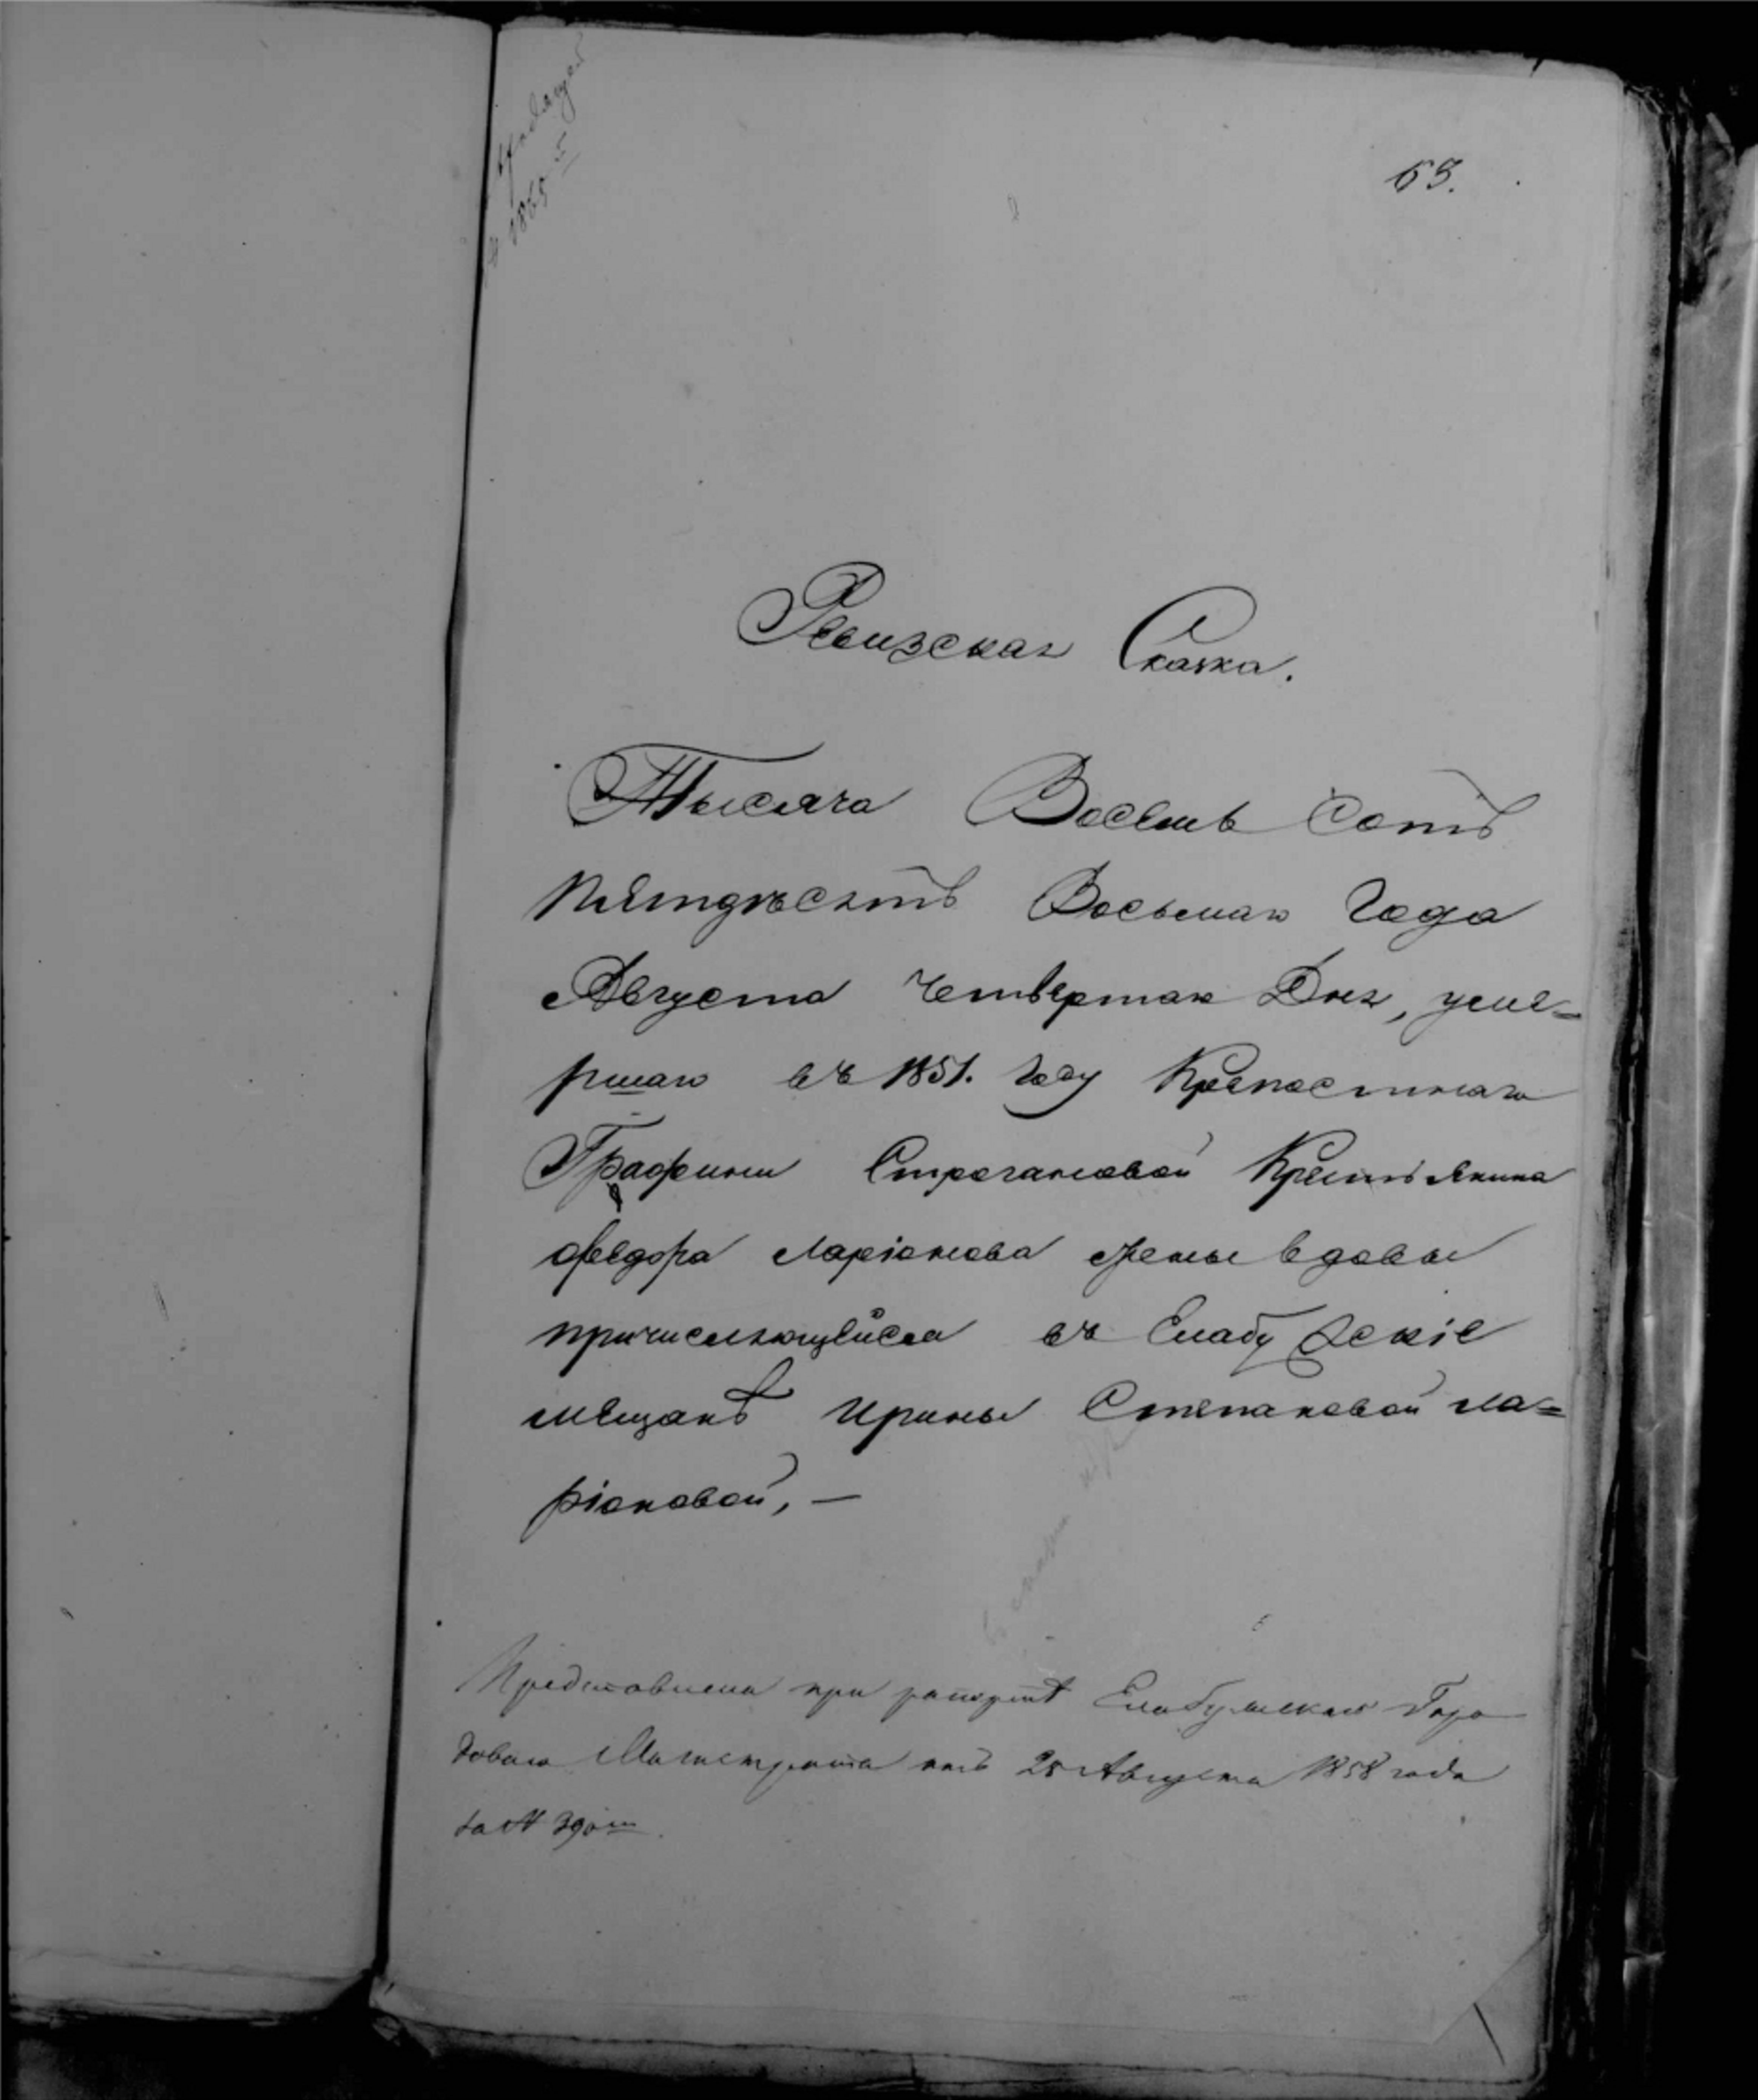 63.
Ревизская Сказка.
Тысяча Восемь Сотъ
пятдѣсятъ Восьмаго Года
Августа Четвертаго Дня, уме=
ршаго въ 1851. году Крепостнаго
Графини Строгановой Крестьянина
Федора Ларіонова жены вдовы
причисляющейся въ Елабужскіе
мещанѣ Ирины Степановой Ла=
ріоновой, —
Представлена при рапортѣ Елабужскаго Горо
доваго Магистрата отъ 25 Августа 1858 года
за N